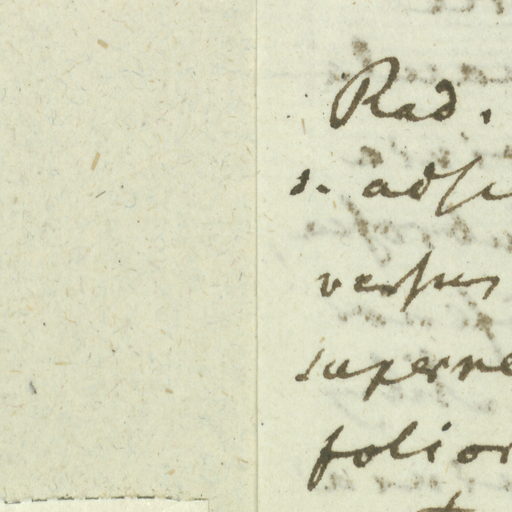 Rad.
s. adſc
verſus
superne
folior